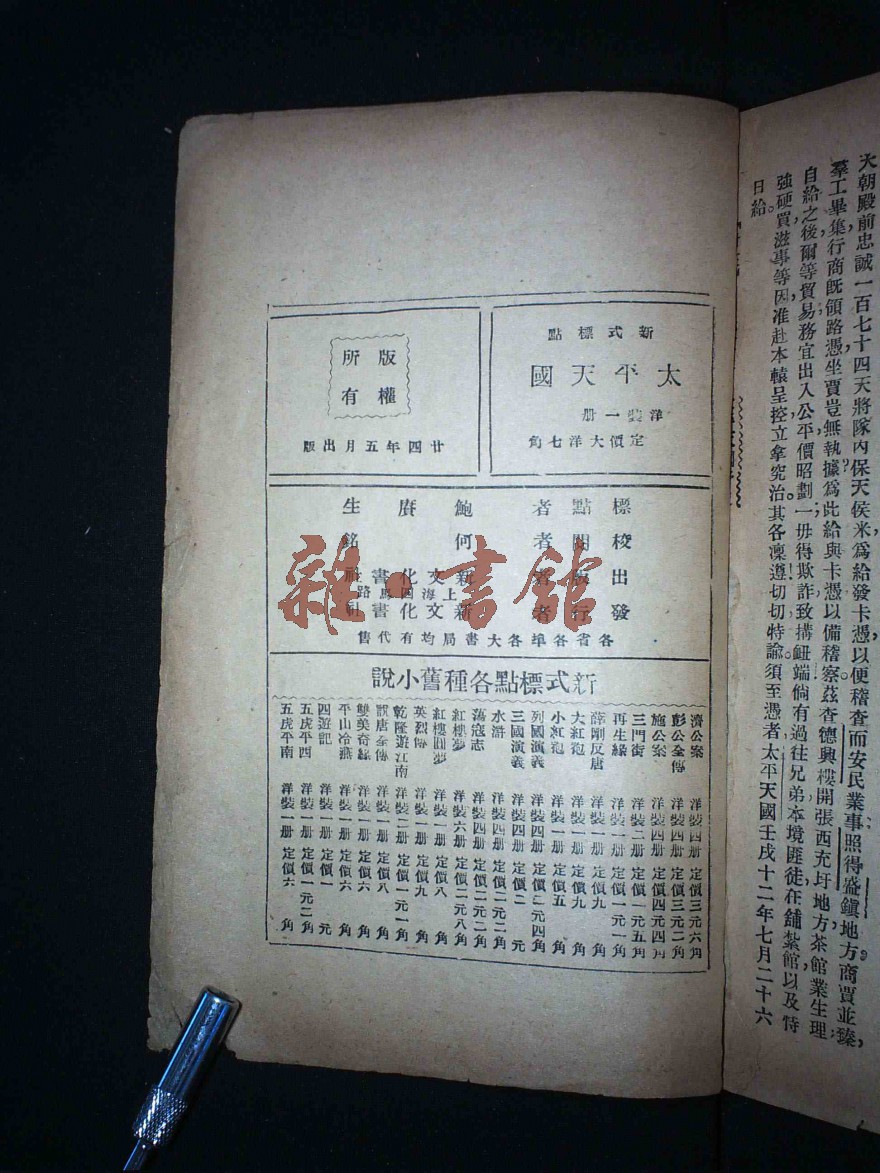 大朝殿前忠誠一百七十四天將隊內保天侯米爲給發卡憑,以便稽查而安民業事照得盛鎮地方商賈並臻,
羣工畢集,行商既領路憑,坐賈豈無執據?爲此給與卡憑,以備稽察。茲查德興樓開張西充圩地方茶館業生理;
自給之後,爾等貿易,務宜出入公平,價昭劃一,毋得欺詐,致搆釁端;倘有過往兄弟,本境匪徒,在舖紮館以及恃
強硬買滋事等因,准赴本轅呈控,立拿究治。其各凜遵,切切特諭,須至憑者。太平天國壬戌十二年七月二十六
日給。
新式標點
太平天國
洋裝一册
定價大洋七角
版權
所有
廿四年五月出版
標點者 鮑賡生
校閱者 何銘
出版者 新文化書社
上海四馬路
發行者 新文化書社
各省各埠各大書局均有代售
新式標點各種舊小說
濟公案 洋裝四册 定價三元六角
彭公全傳 洋裝四册 定價三元二角
施公案 洋裝四册 定價四元四角
三門街 洋裝二册 定價一元五角
再生緣 洋裝二册 定價一元一角
薛剛反唐 洋裝一册 定價九角
大紅袍 洋裝一册 定價九角
小紅袍 洋裝一册 定價五角
列國演義 洋裝四册 定價二元四角
三國演義 洋裝四册 定價二元
水滸 洋裝四册 定價一元二角
蕩寇志 洋裝四册 定價二元二角
紅樓夢 洋裝六册 定價二元八角
紅樓圓夢 洋裝一册 定價八角
英烈傳 洋裝一册 定價九角
乾隆遊江南 洋裝二册 定價一元一角
說唐全傳 洋裝一册 定價八角
雙美奇緣 洋裝一册 定價六角
平山冷燕 洋裝一册 定價六角
四遊記 洋裝一册 定價一元
五虎平西 洋裝一册 定價一元二角
五虎平南 洋裝一册 定價六角
雜·書館